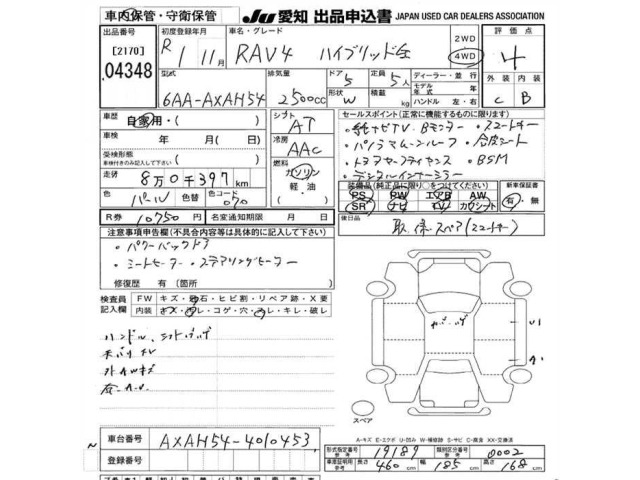 車内保管・守衛保管
JU 愛知 出品申込書 JAPAN USED CAR DEALERS ASSOCIATION
出品番号
[2170]
04348
初度登録年月
R 1 11月
車名・グレード
RAV4 ハイブリッドG
2WD
4WD
評価点
4
型式
6AA-AXAH54
排気量
2500cc
ドア 5
形状 W
定員 5人
積載 kg
ディーラー・並行
モデル年式 年
ハンドル 左・右
外装 内装
C B
車歴
自家用・( )
車検 年 月( 日)
受検形態
車検付きのみご記入下さい
( )
走行 8万0千397km
色 パール 色替
色コード 070
R券 10750円
名変通知期限 月 日
シフト AT
冷房 AAC
燃料
ガソリン
軽・油
( )
セールスポイント(正常に機能するものに限ります)
・純ナビTV、Bモニター ・スマートキー
・パノラマムーンルーフ ・合皮シート
・トヨタセーフティセンス ・BSM
・デジタルインナーミラー
装備品(純正品に限り○をつけてください)
PS PW エアB AW
SR ナビ TV カワシート
新車保証書
有・無
後日品
取、保、スペア(スマートキー)
注意事項申告欄(不具合等は具体的に記入して下さい)
・パワーバックドア
・シートヒーター ・ステアリングヒーター
修復歴 有(箇所 )
検査員記入欄
FW キズ・飛石・ヒビ割・リペア跡・X要
内装 キズ・汚レ・コゲ・穴・スレ・キレ・破レ
スペア
A-キズ E-エクボ U-凹み W-補修跡 S-サビ C-腐食 XX-交換済
車台番号 AXAH54-4010453
登録番号
形式指定番号 19189
類別区分番号 0002
車庫証明用参考 長さ 460cm 幅 185cm 高さ 168cm